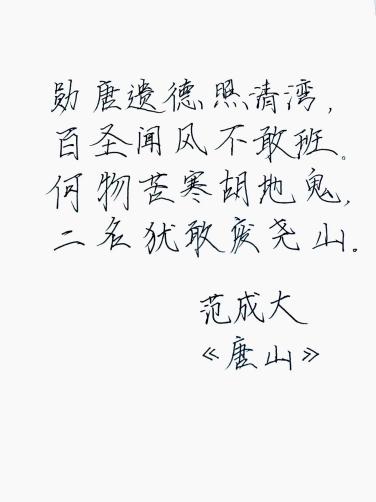 勋唐遗德照清湾，
百圣闻风不敢班。
何物苦寒胡地鬼，
二名犹敢废尧山。
范成大
《唐山》